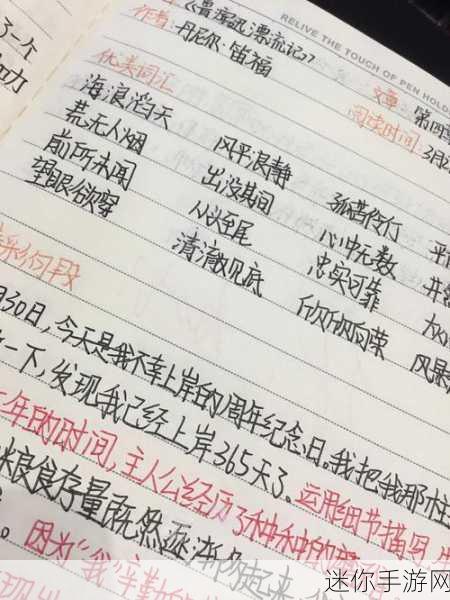 《鲁滨逊漂流记》
RELIVE THE TOUCH OF PEN HOLD
作者：丹尼尔·笛福
文章：第四
阅读时间：3月2
优美词汇
海浪滔天 风平浪静 孤苦伶仃
荒无人烟 出没其间 心中无数
前所未闻 从头至尾 忠实可靠
望眼欲穿 清澈见底 欣欣向荣 风暴
月30日，今天是我不幸上岸的周年纪念日。我把我那柱
一下，发现我已经上岸365天了。运用细节描写
年的时间，主人公经历了种种的
粮食存量既然逐渐
因为“我”辛勤的
迷你手游网